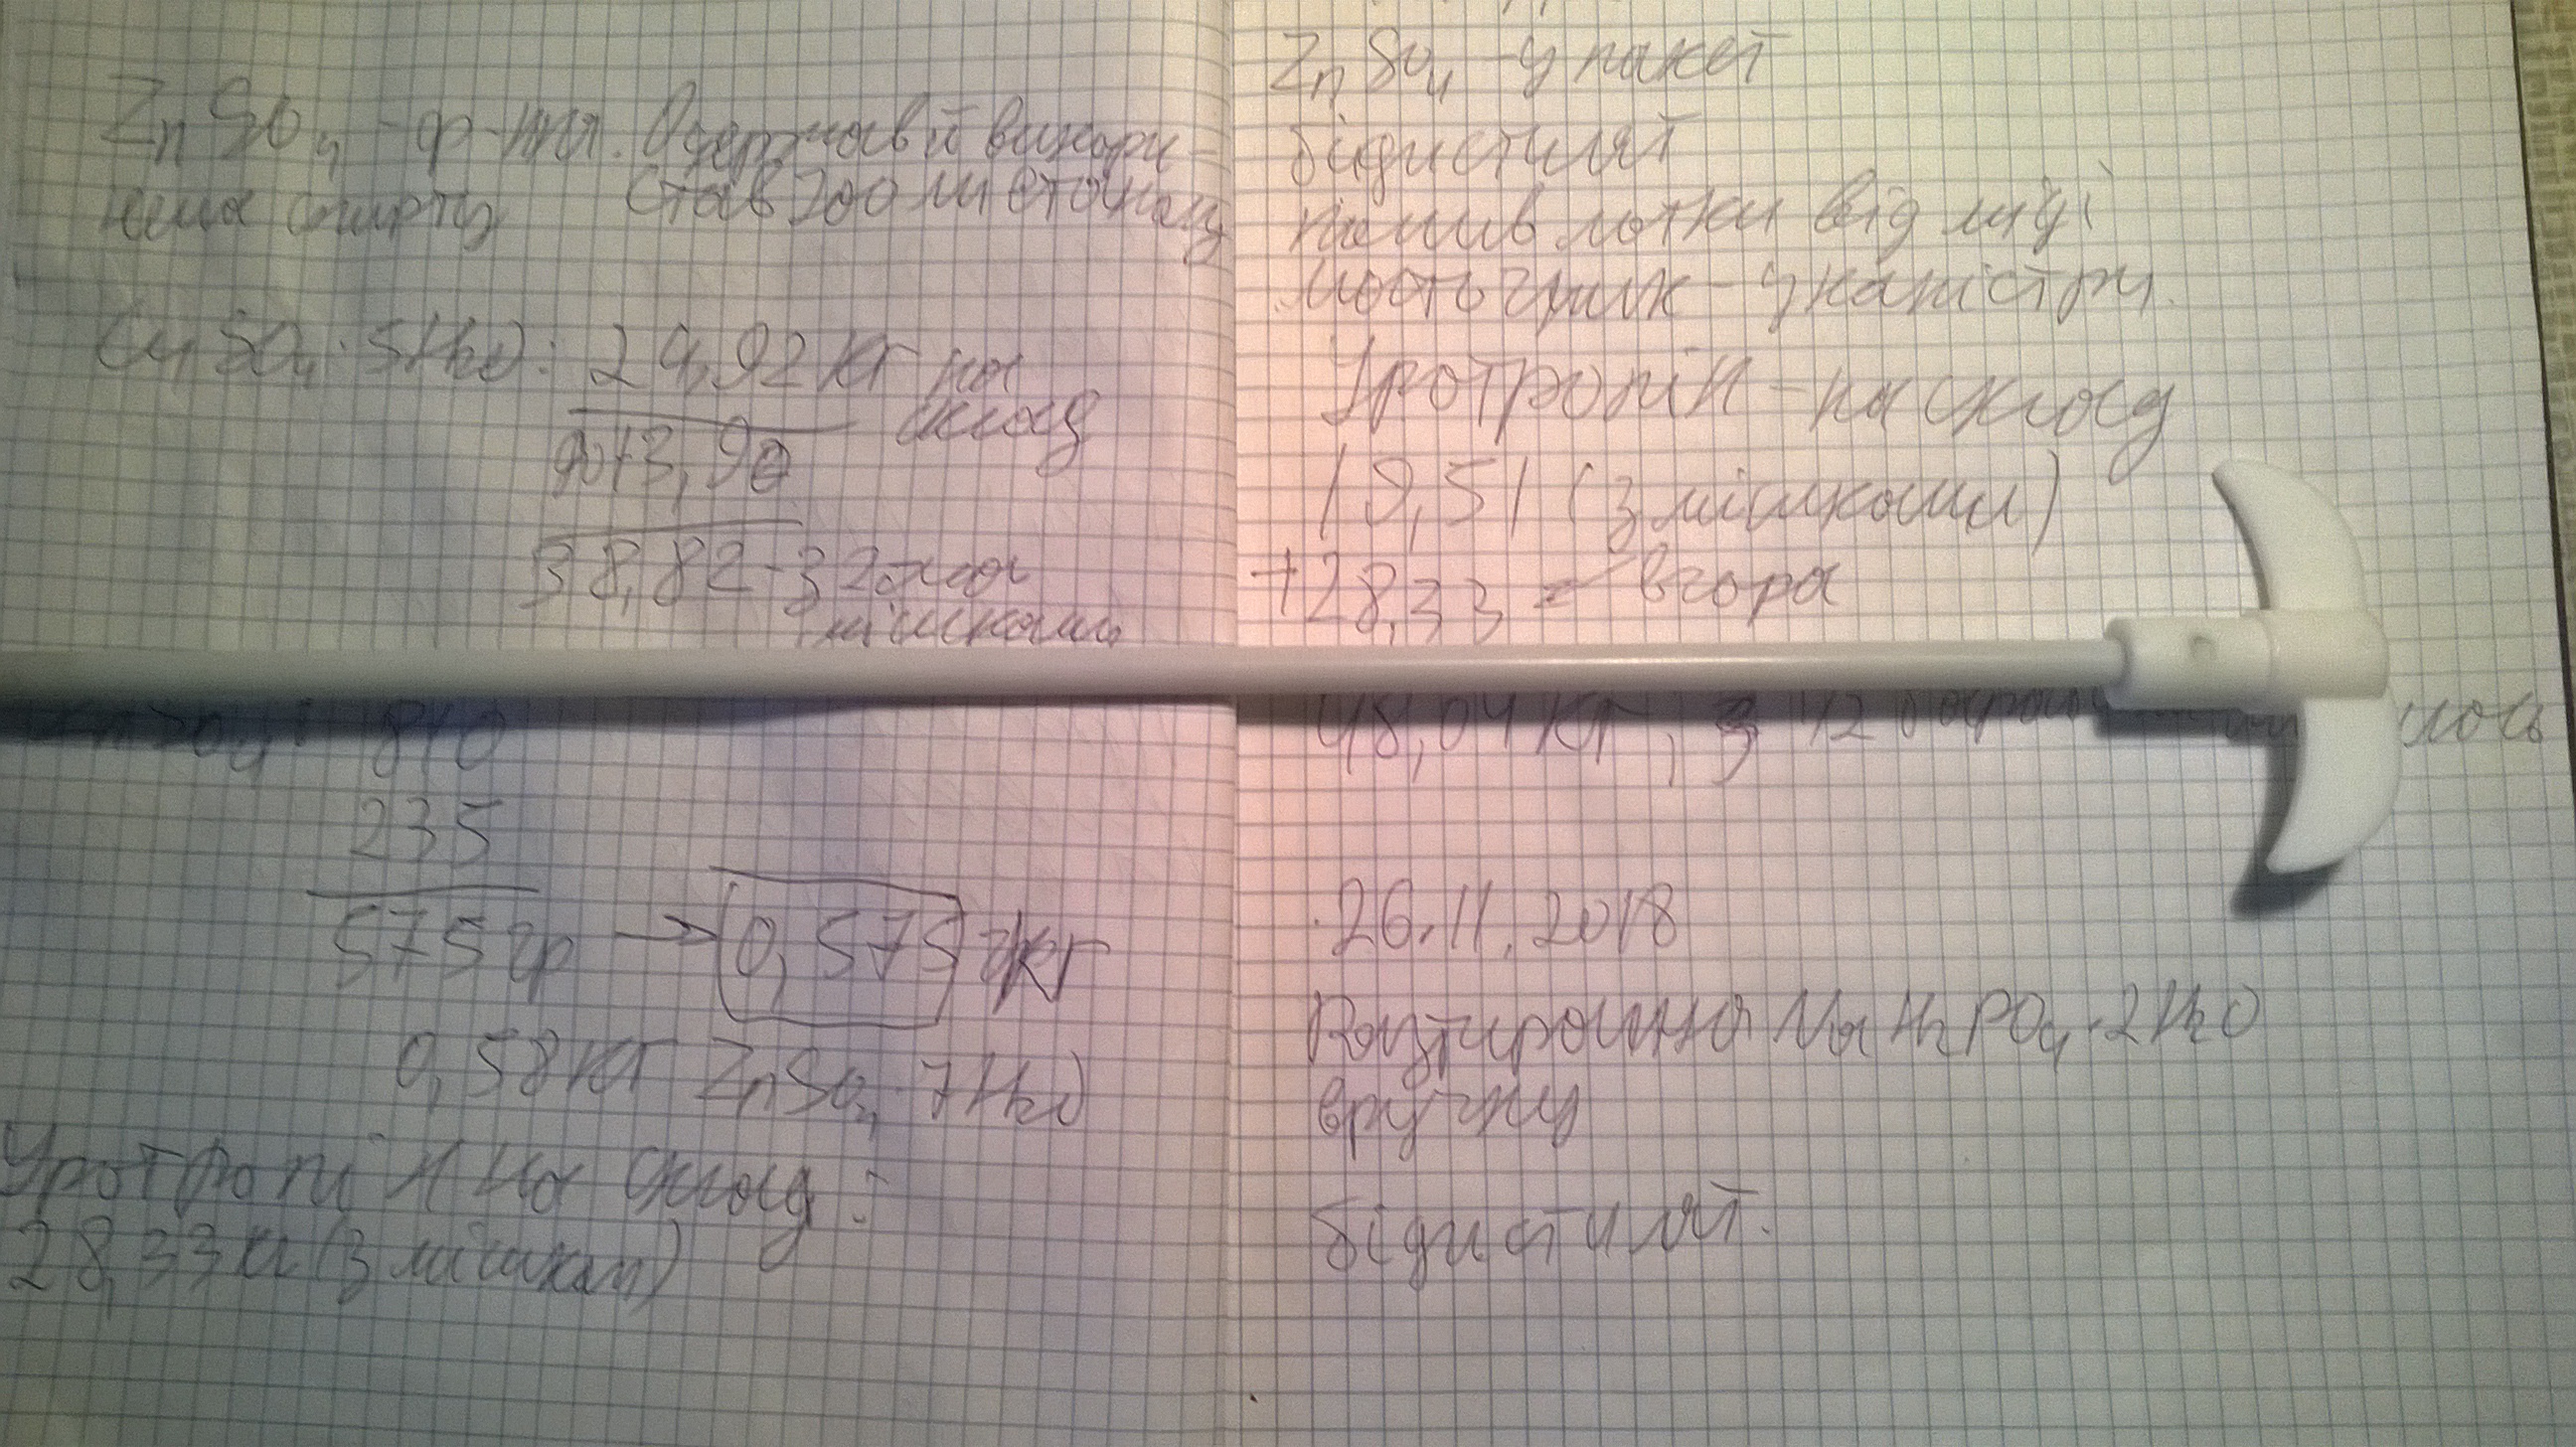 ZnSO₄ - ф-ння. Одержав й викори-
нема спирту став 200 мл етанолу
CuSO₄·5H₂O: 24,92 кг на
склад
13,90
38,82 - з 2-ма
мішками
810
235
575 гр → 0,575 кг
0,58 кг ZnSO₄·7H₂O
Уротропін на склад:
28,33 кг (з мішкам)
ZnSO₄ - у пакет
бідистилят
помив лотки від міді
маточник - у каністри.
Уротропін - на склад
19,51 (з мішками)
+28,33 = вгора
48,04 кг, з 42
лось
26.11.2018
Фільтрування NaH₂PO₄·2H₂O
вручну
бідистилят.